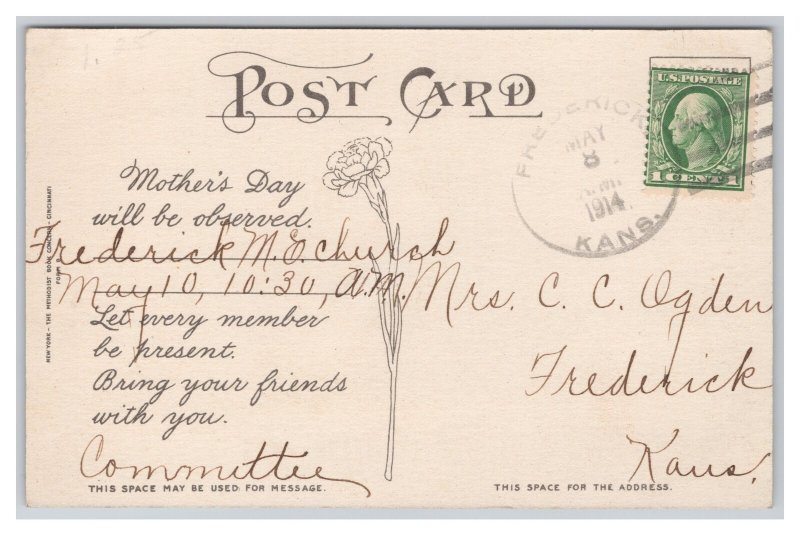 POST CARD
U.S. POSTAGE
1 CENT 1
FREDERICK
MAY
8
1914
KANS.
Mother's Day
will be observed.
Frederick M. E. church
May 10, 10:30, A.M.
Let every member
be present.
Bring your friends
with you.
Committee
THIS SPACE MAY BE USED FOR MESSAGE.
NEW YORK - THE METHODIST BOOK CONCERN - CINCINNATI
Mrs. C. C. Ogden
Frederick
Kans.
THIS SPACE FOR THE ADDRESS.